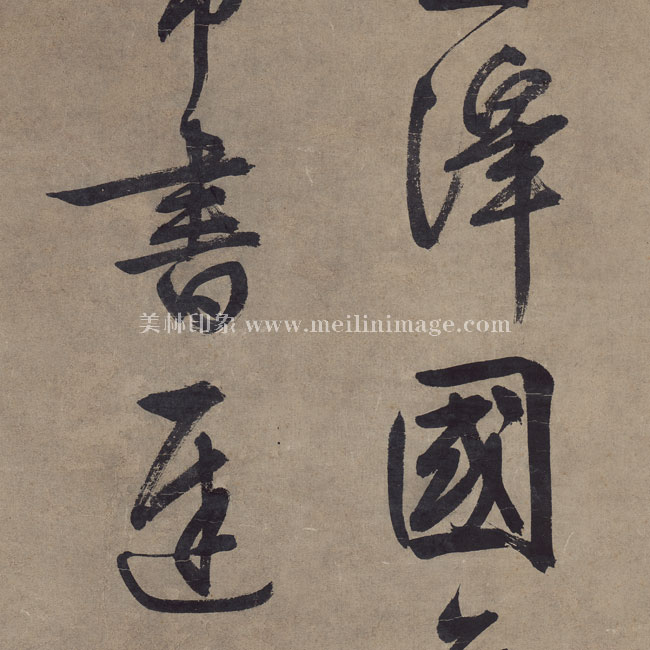 澤國
書遲
美林印象 www.meilinimage.com